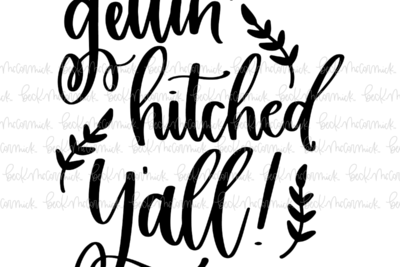 gettin'
hitched
y'all!